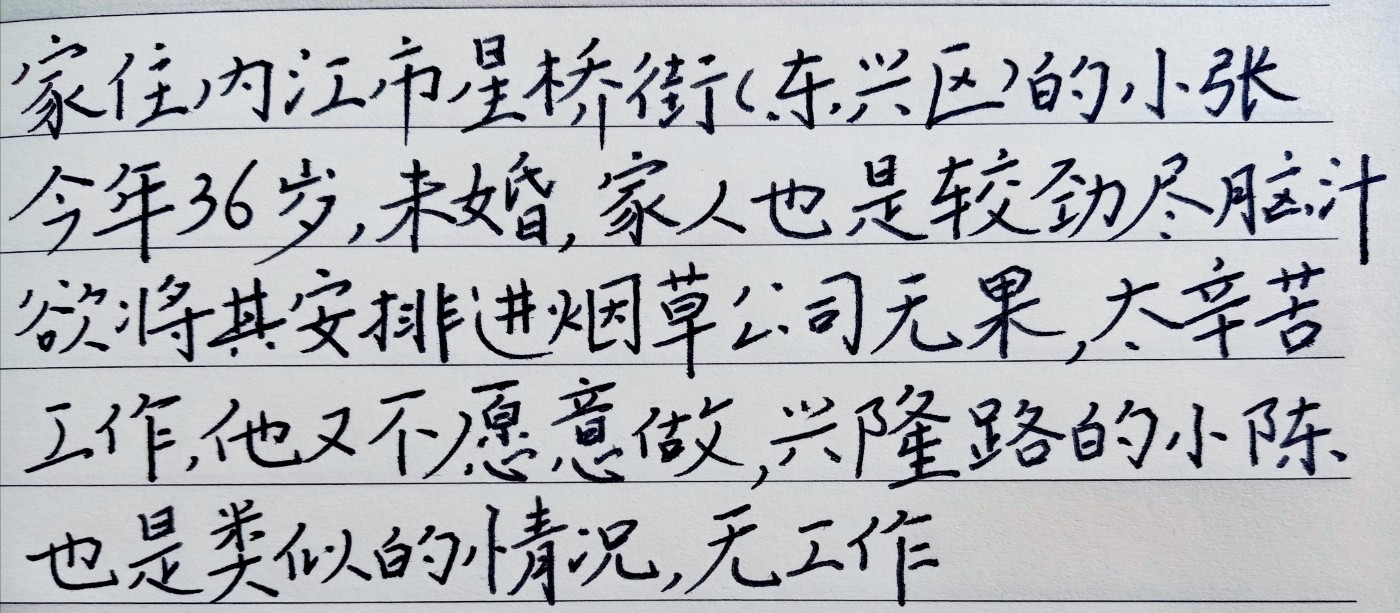 家住内江市星桥街(东兴区)的小张
今年36岁,未婚,家人也是较劲尽脑汁
欲将其安排进烟草公司无果,太辛苦
工作,他又不愿意做,兴隆路的小陈
也是类似的情况,无工作